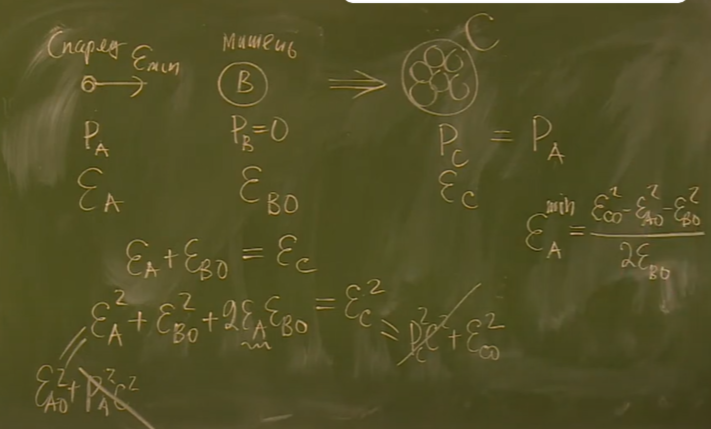 Снаряд Мишень C
ℰmin B ⟹
P_A P_B=0 P_C = P_A
ℰ_A ℰ_B0 ℰ_C
ℰ_A^min = (ℰ_C0^2 - ℰ_A0^2 - ℰ_B0^2) / 2ℰ_B0
ℰ_A + ℰ_B0 = ℰ_C
ℰ_A^2 + ℰ_B0^2 + 2ℰ_A ℰ_B0 = ℰ_C^2 = P_C^2 C^2 + ℰ_C0^2
ℰ_A0^2 + P_A^2 C^2